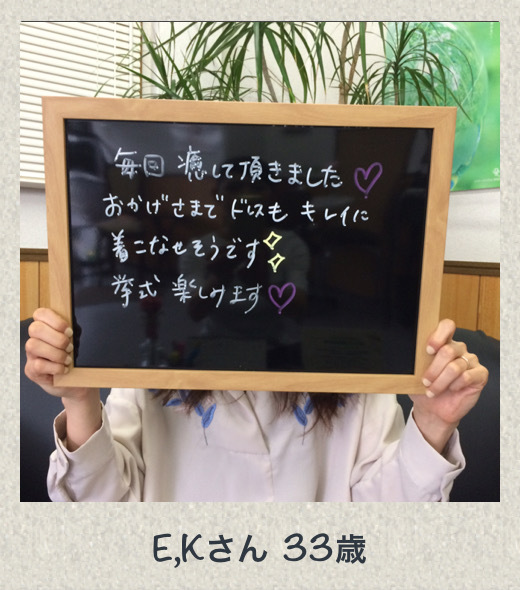 毎回 癒して頂きました♡
おかげさまでドレスも キレイに
着こなせそうです
挙式 楽しみます♡
E,Kさん 33歳